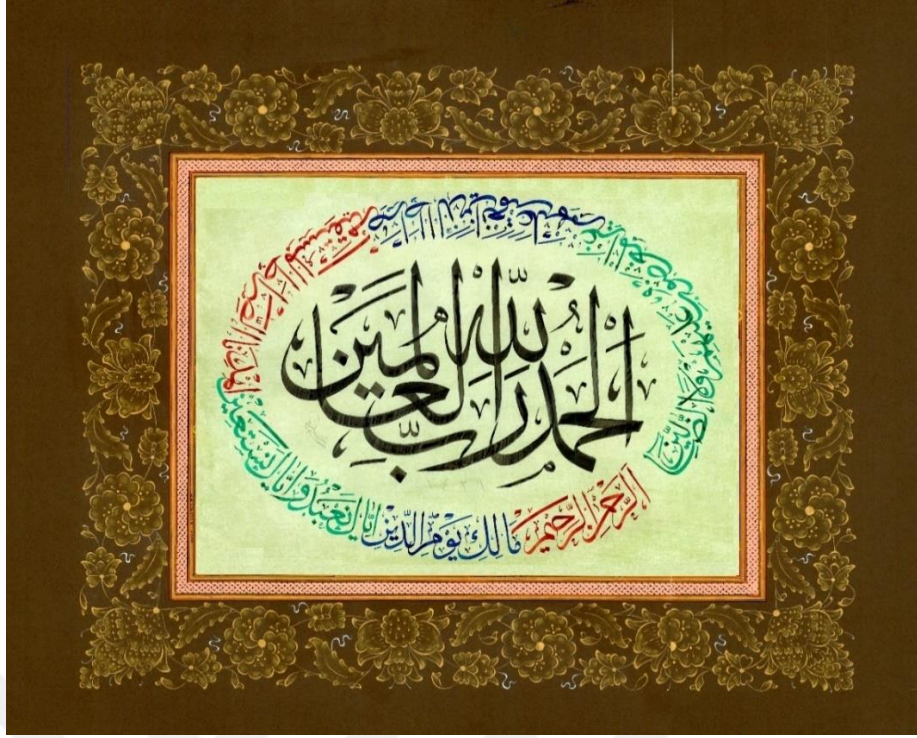 الحمد لله رب العالمين
الرحمن الرحيم
مالك يوم الدين
إياك نعبد وإياك نستعين
اهدنا الصراط المستقيم
صراط الذين أنعمت عليهم
غير المغضوب عليهم ولا الضالين